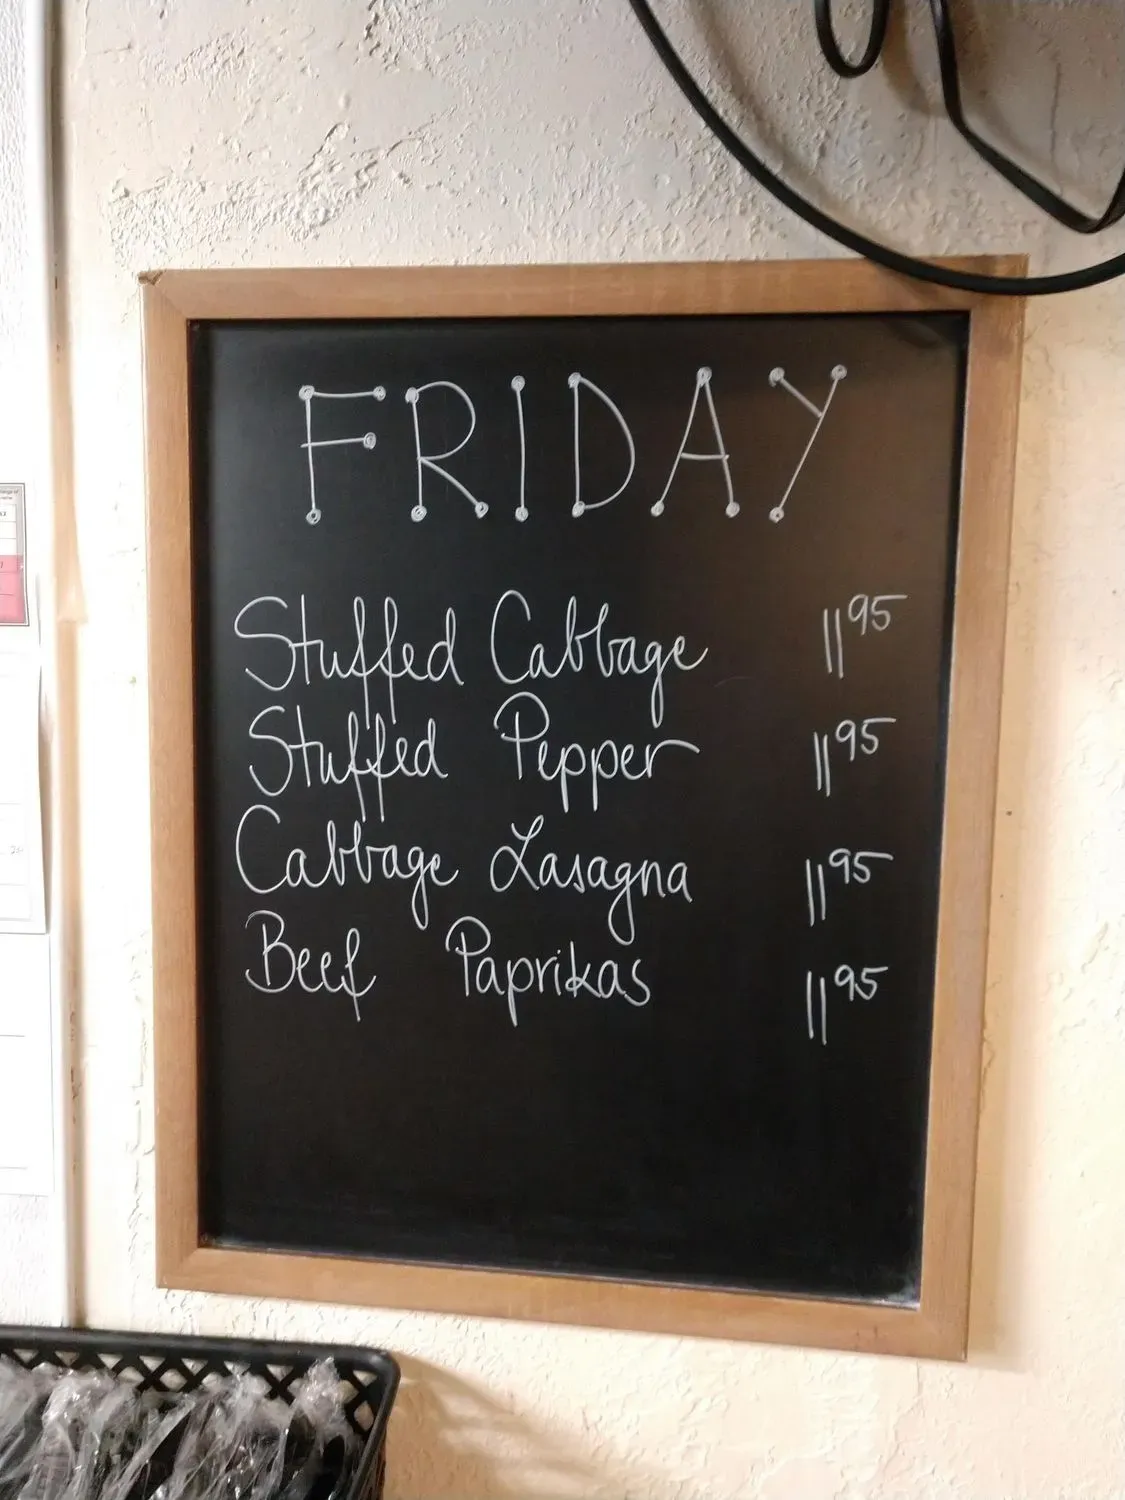 FRIDAY
Stuffed Cabbage 11 95
Stuffed Pepper 11 95
Cabbage Lasagna 11 95
Beef Paprikas 11 95